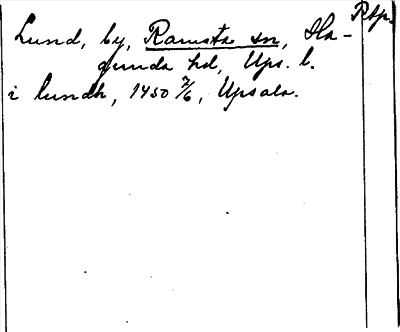 Lund, by, Ramsta sn, Ha-
gunda hd, Ups. l.
i lundh, 1450 7/6, Upsala.